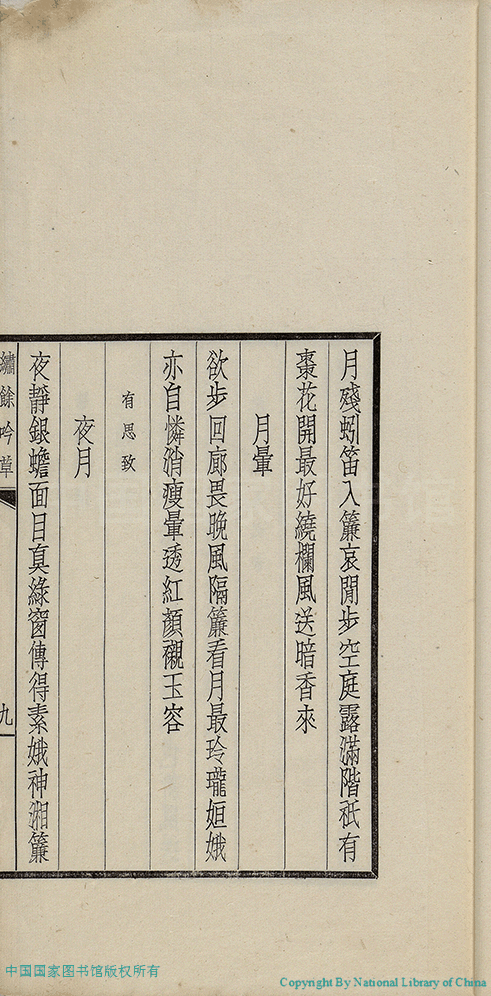 月殘蚓笛入簾哀閒步空庭露滿階祇有
棗花開最好繞欄風送暗香來
月暈
欲步回廊畏晚風隔簾看月最玲瓏姮娥
亦自憐消瘦暈透紅顏襯玉容
有思致
夜月
夜靜銀蟾面目真綠窗傳得素娥神湘簾
繡餘吟草
九
中国国家图书馆版权所有
Copyright By National Library of China